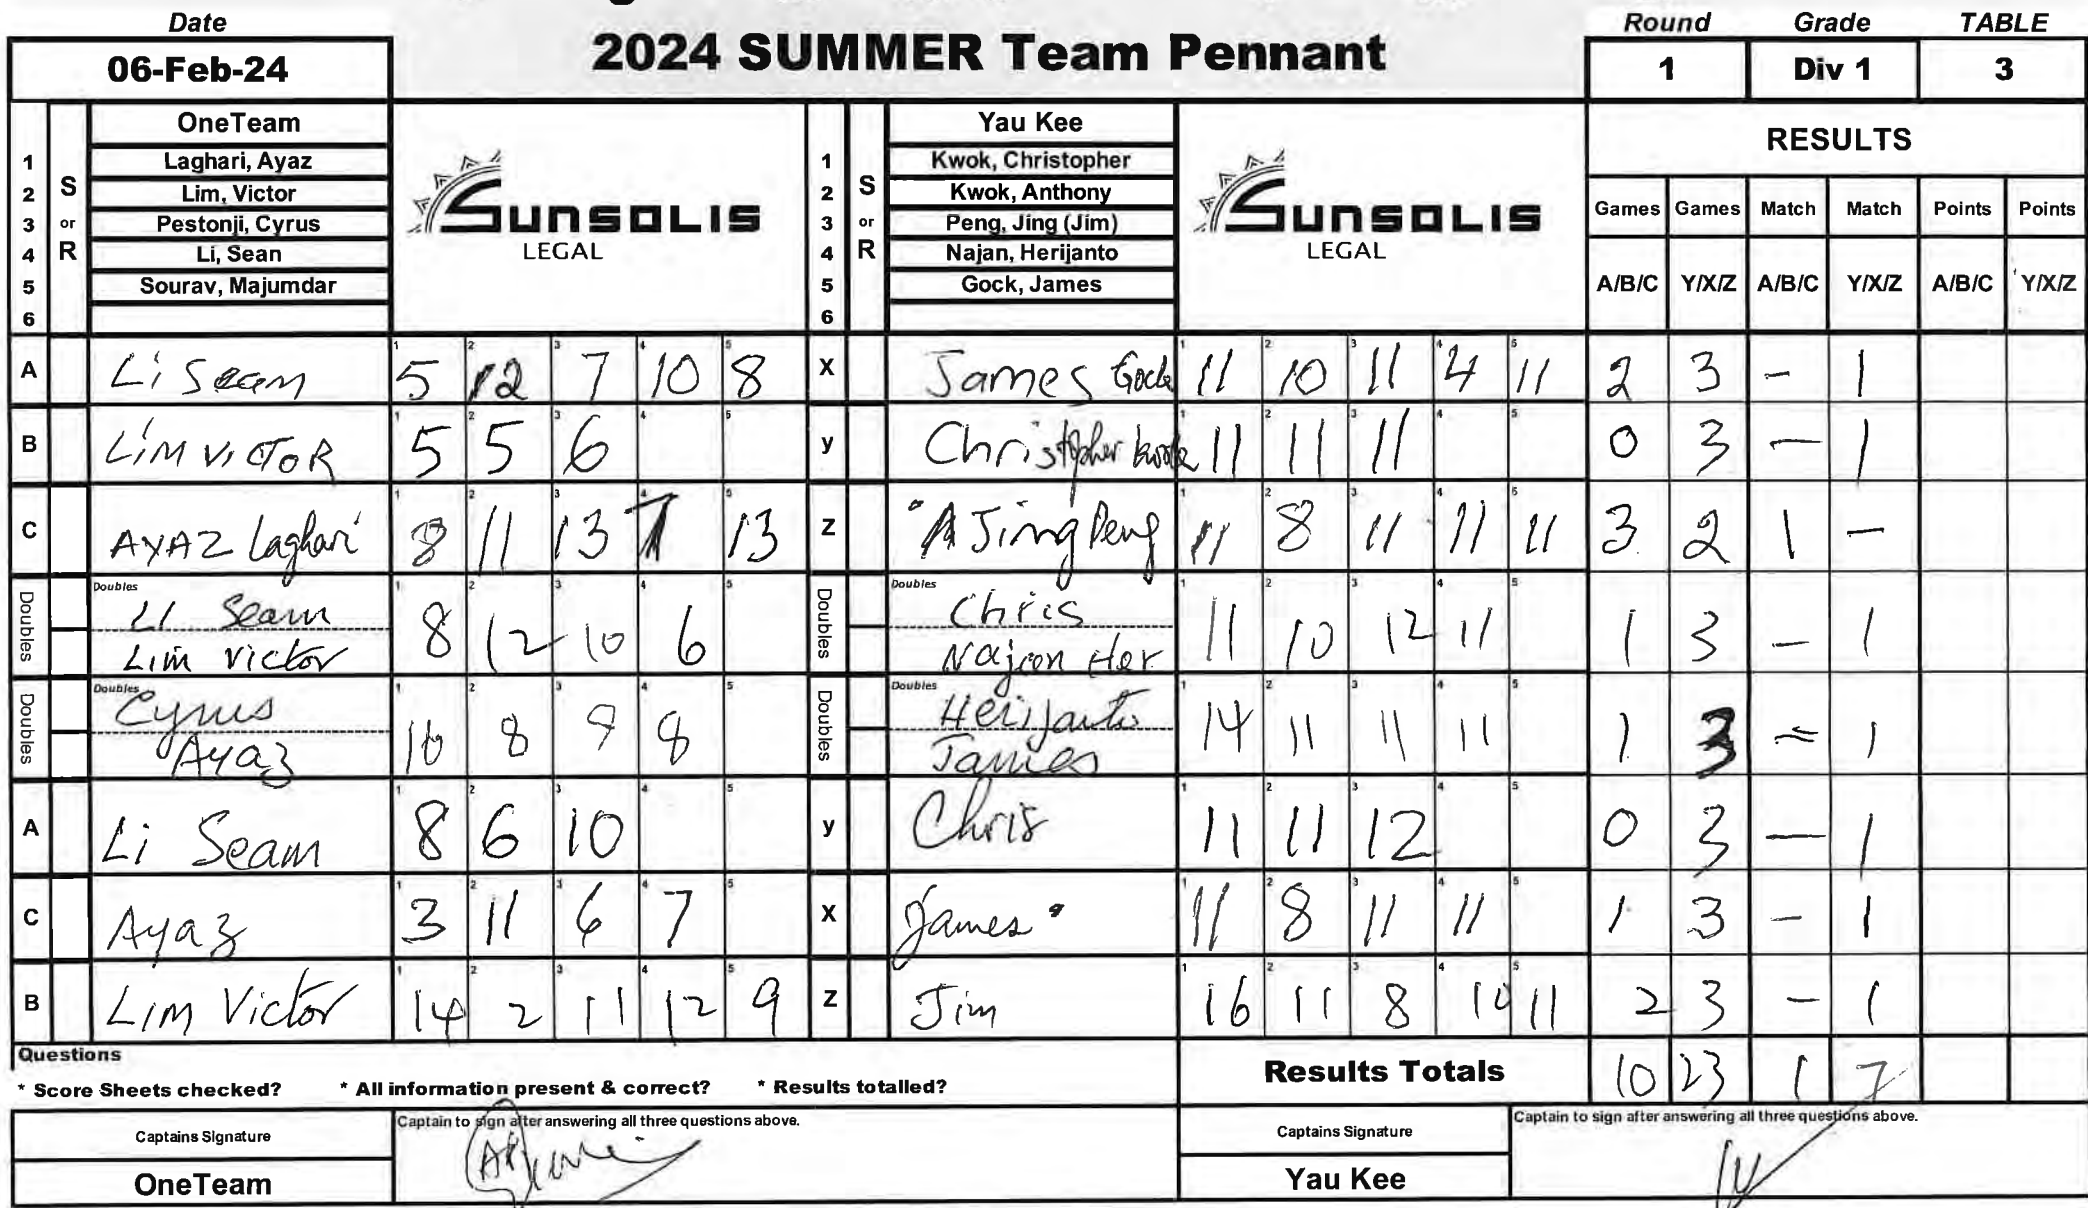 Date
06-Feb-24
2024 SUMMER Team Pennant
Round Grade TABLE
1 Div 1 3
OneTeam
1 Laghari, Ayaz
2 Lim, Victor
3 Pestonji, Cyrus
4 Li, Sean
5 Sourav, Majumdar
6
S or R
SUNSOLIS
LEGAL
Yau Kee
1 Kwok, Christopher
2 Kwok, Anthony
3 Peng, Jing (Jim)
4 Najan, Herijanto
5 Gock, James
6
S or R
SUNSOLIS
LEGAL
RESULTS
Games Games Match Match Points Points
A/B/C Y/X/Z A/B/C Y/X/Z A/B/C Y/X/Z
A Li Sean 5 12 7 10 8 X James Gock 11 10 11 4 11 2 3 - 1
B LiM VICTOR 5 5 6 y Christopher kwok 11 11 11 0 3 - 1
C AYAZ Laghari 8 11 13 7 13 Z Jing Peng 11 8 11 11 11 3 2 1 -
Doubles Doubles LI Sean 8 12 10 6 Doubles Doubles Chris 11 10 12 11 1 3 - 1
Lim Victor Najan Her
Doubles Doubles Cyrus 8 9 8 Doubles Doubles Herijanto 14 11 11 11 1 3 - 1
Ayaz James
A Li Sean 8 6 10 y Chris 11 11 12 0 3 - 1
C Ayaz 3 11 6 7 X James 11 8 11 11 1 3 - 1
B LIM Victor 14 2 11 12 9 Z Jim 16 11 8 10 11 2 3 - 1
Questions
* Score Sheets checked? * All information present & correct? * Results totalled?
Results Totals 10 23 1 7
Captains Signature
Captain to sign after answering all three questions above.
OneTeam
Captains Signature
Captain to sign after answering all three questions above.
Yau Kee